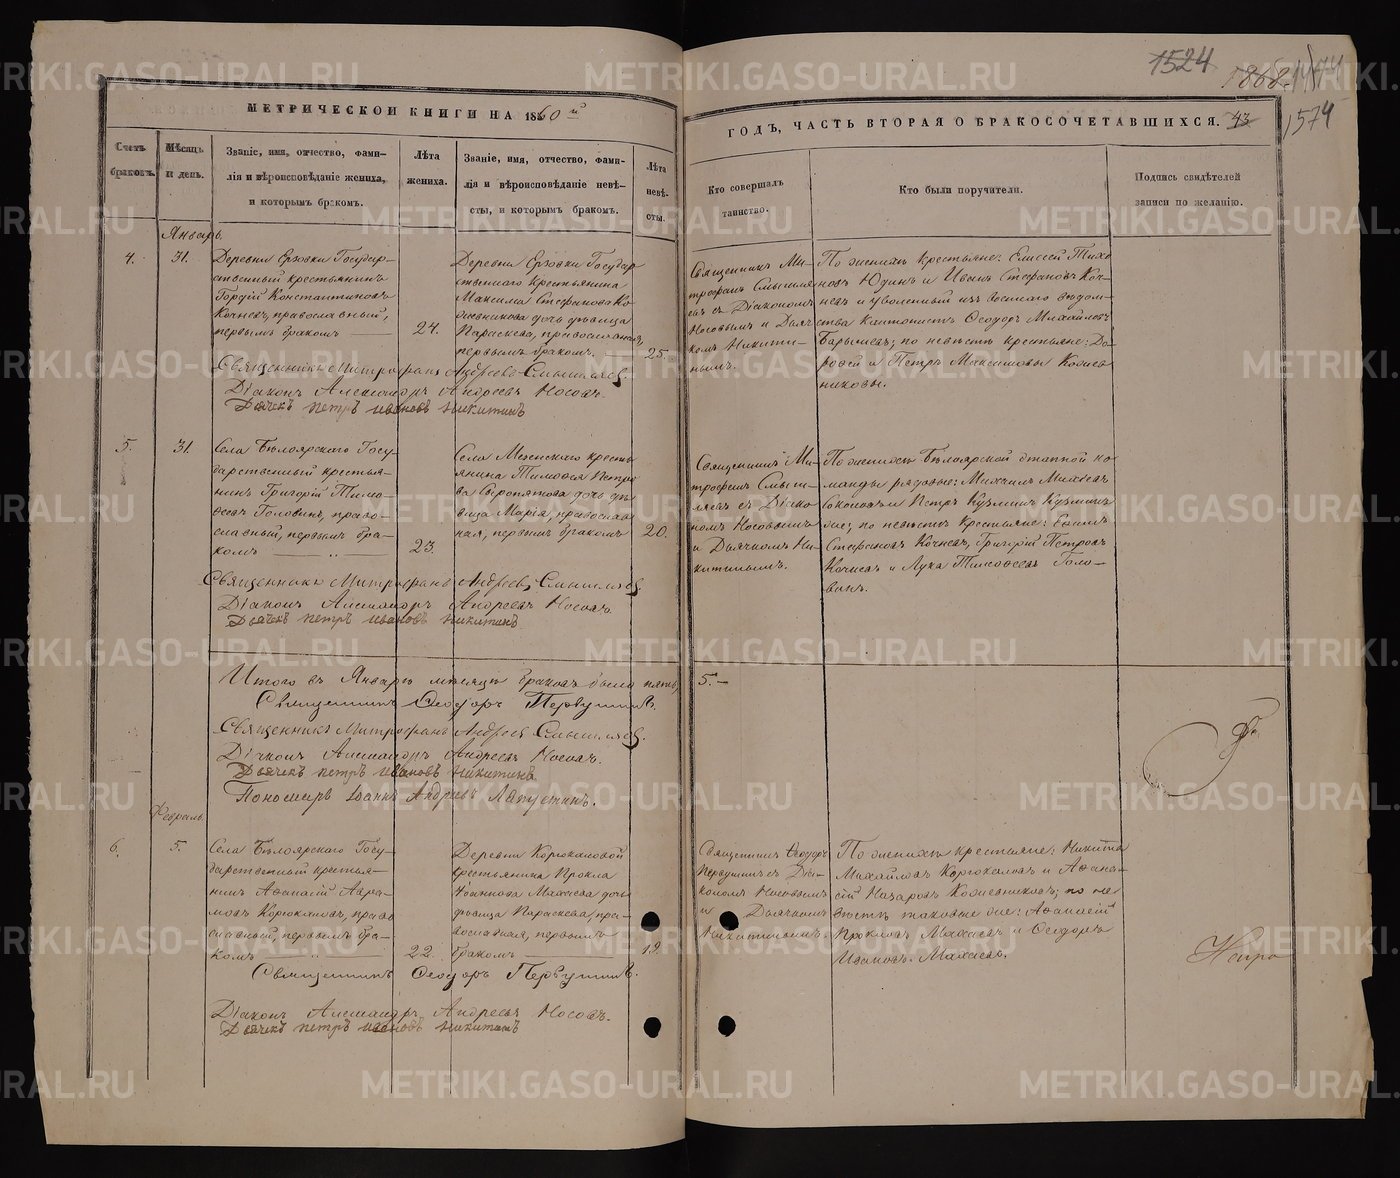 1524
1868
1574
МЕТРИЧЕСКОЙ КНИГИ НА 1860 й
Счетъ браковъ.
Мѣсяцъ и день.
Званіе, имя, отчество, фами-
лія и вѣроисповѣданіе жениха,
и которымъ бракомъ.
Лѣта жениха.
Званіе, имя, отчество, фами-
лія и вѣроисповѣданіе невѣ-
сты, и которымъ бракомъ.
Лѣта невѣ-
сты.
ГОДЪ, ЧАСТЬ ВТОРАЯ О БРАКОСОЧЕТАВШИХСЯ. 43
Кто совершалъ
таинство.
Кто были поручители.
Подпись свидѣтелей
записи по желанію.
Январь.
4.
31.
Деревни Ерзовки Государ-
ственный крестьянинъ
Гордій Константиновъ
Кочневъ, православный,
первымъ бракомъ
24.
Деревни Ерзовки Государ
ственнаго крестьянина
Максима Стефанова Ко
жевникова дочь дѣвица
Параскева, православная,
первымъ бракомъ.
25.
Священникъ Ми-
трофанъ Смышля
евъ съ Діакономъ
Носовымъ и Дьяч
комъ Никити-
нымъ.
По женихѣ крестьяне: Елисей Тихо
новъ Юдинъ и Иванъ Стефановъ Коч-
невъ и уволенный изъ военнаго вѣдом-
ства кантонистъ Ѳеодоръ Михайловъ
Барышевъ; по невѣстѣ крестьяне: До-
роѳей и Петръ Максимовы Кожев
никовы.
Священникъ Митрофанъ Андреевъ Смышляевъ.
Діаконъ Александръ Андреевъ Носовъ.
Дьячекъ Петръ Ивановъ Никитинъ
5.
31.
Села Бѣлоярскаго Госу-
дарственный крестья-
нинъ Григорій Тимо-
ѳеевъ Головинъ, право-
славный, первымъ бра-
комъ
23.
Села Мезенскаго кресть
янина Тимоѳея Петро
ва Сыропятова дочь дѣ-
вица Марія, православ
ная, первымъ бракомъ
20.
Священникъ Ми-
трофанъ Смыш-
ляевъ съ Діако-
номъ Носовымъ
и Дьячкомъ Ни-
китинымъ.
По женихѣ Бѣлоярской этапной ко-
манды рядовые: Михаилъ Михѣевъ
Соколовъ и Петръ Кузминъ Кузминъ
же; по невѣстѣ крестьяне:
Стефановъ Кочневъ, Григорій Петровъ
Кочневъ и Лука Тимоѳеевъ Голо-
винъ.
Священникъ Митрофанъ Андреевъ Смышляевъ.
Діаконъ Александръ Андреевъ Носовъ.
Дьячекъ Петръ Ивановъ Никитинъ
Итого въ Январѣ мѣсяцѣ браковъ было пять, 5.
Священникъ Ѳеодоръ Первушинъ.
Священникъ Митрофанъ Андреевъ Смышляевъ.
Діаконъ Александръ Андреевъ Носовъ.
Дьячекъ Петръ Ивановъ Никитинъ
Пономарь Іоаннъ Андреевъ
Февраль.
6.
5.
Села Бѣлоярскаго Госу-
дарственный крестья-
нинъ Аѳанасій Авра-
мовъ Корюкаловъ, право
славный, первымъ бра-
комъ
22.
Деревни Корюкаловой
крестьянина Прокла
Іоаннова Махнева дочь
дѣвица Параскева, пра-
вославная, первымъ
бракомъ
19.
Священникъ Ѳеодоръ
Первушинъ съ Діа-
кономъ Носовымъ
и Дьячкомъ
Никитинымъ.
По женихѣ крестьяне: Никита
Михайловъ Корюкаловъ и Аѳана-
сій Назаровъ Кожевниковъ; по не
вѣстѣ таковые же: Аѳанасій
Прокловъ Махневъ и Ѳеодоръ
Ивановъ Махневъ.
Священникъ Ѳеодоръ Первушинъ.
Діаконъ Александръ Андреевъ Носовъ.
Дьячекъ Петръ Ивановъ Никитинъ
METRIKI.GASO-URAL.RU